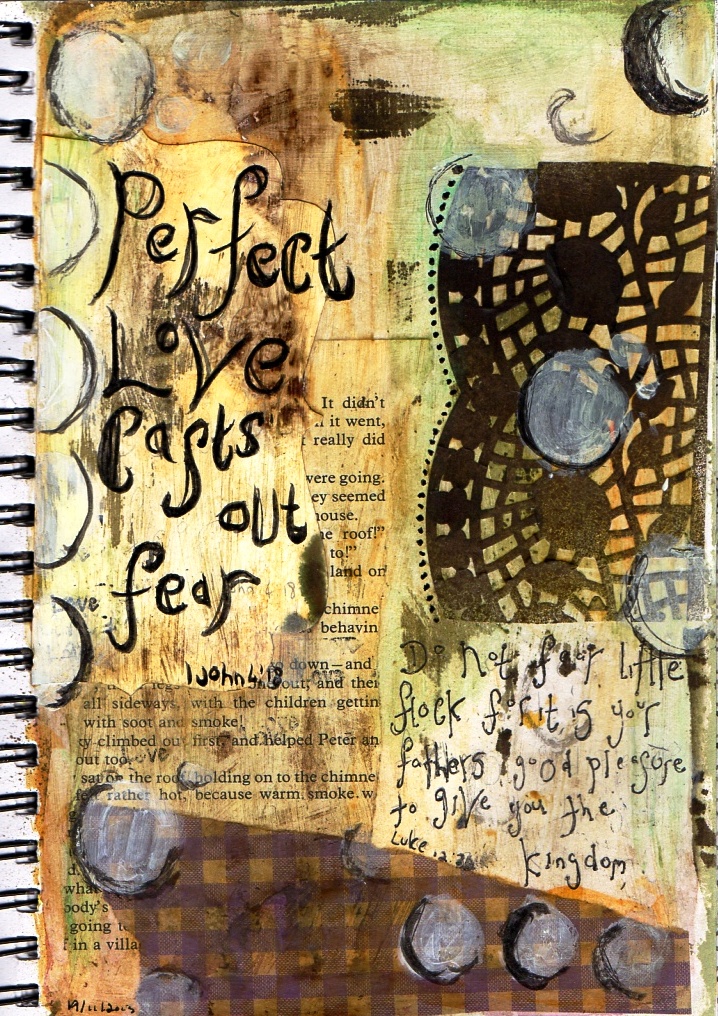 Perfect
Love
Casts
out
fear
1 John 4:18
It didn't
it went,
really did
were going.
ey seemed
house.
e roof!"
to!"
land or
chimne
behavin
down—and
out, and the
all sideways, with the children gettin
with soot and smoke!
climbed out first, and helped Peter an
out too.
sat on the roof holding on to the chimne
rather hot, because warm smoke w
what
body's
going t
in a villa
Do Not fear little
flock for it is your
fathers good pleasure
to give you the
kingdom
Luke 12
19/11/2003